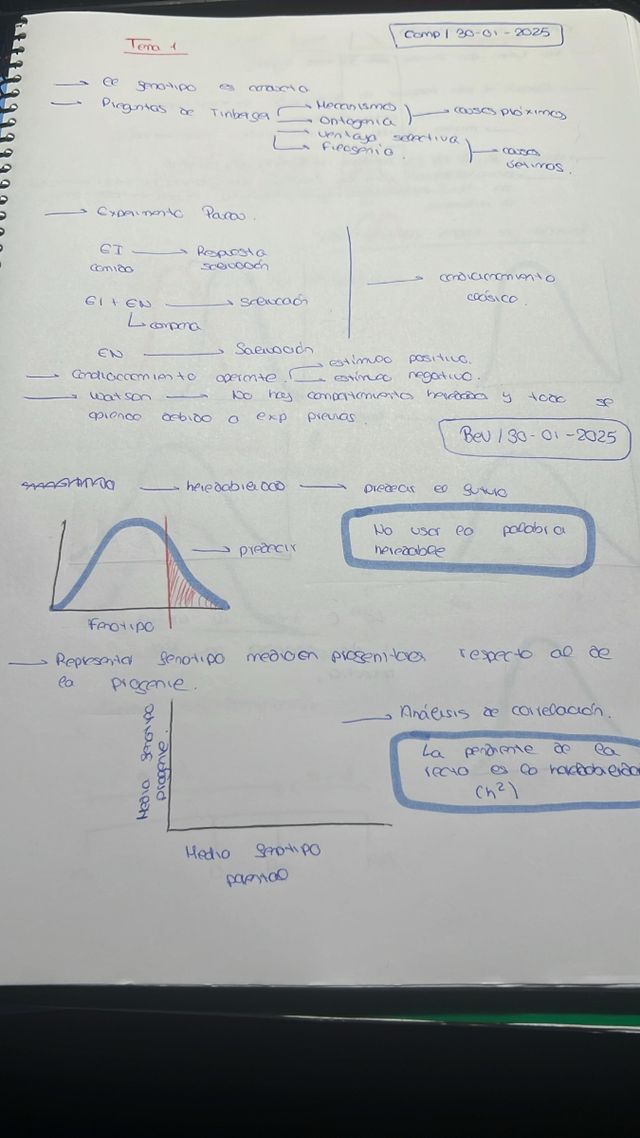 Tema 1
Comp / 30-01-2025
→ el fenotipo es conducta
→ Preguntas de Tinbergen
Mecanismo
Ontogenia
→ causas próximas
Ventaja selectiva
Filogenia.
→ causas últimas.
→ Experimento Pavlov.
EI → Respuesta
comida salivación
EI + EN → salivación
↳ campana
EN → Salivación
→ condicionamiento
clásico.
→ Condicionamiento operante.
→ estímulo positivo.
→ estímulo negativo.
→ Watson → No hay comportamiento heredado y todo se
aprende debido a exp previas.
BeV / 30-01-2025
→ heredabilidad → predecir el futuro
→ predecir
No usar la palabra
heredable
Fenotipo
→ Representar fenotipo medio en progenitores respecto al de
la progenie.
Medio fenotipo
progenie.
Medio fenotipo
parental
→ Análisis de correlación.
La pendiente de la
recta es la heredabilidad
(h²)